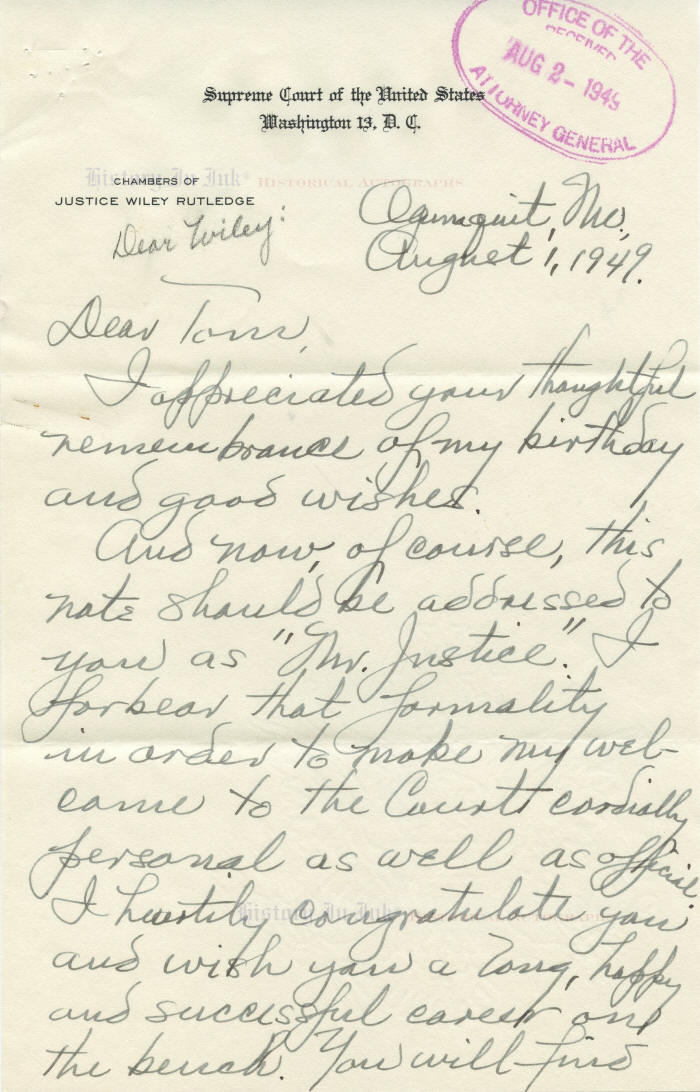 OFFICE OF THE
RECEIVED
AUG 2 - 1949
ATTORNEY GENERAL
Supreme Court of the United States
Washington 13, D. C.
History In Ink® HISTORICAL AUTOGRAPHS
CHAMBERS OF
JUSTICE WILEY RUTLEDGE
Dear Wiley:
Ogunquit, Me,
August 1, 1949.
Dear Tom,
I appreciated your thoughtful
remembrance of my birthday
and good wishes.
And now, of course, this
note should be addressed to
you as "Mr. Justice". I
forbear that formality
in order to make my wel-
come to the Court cordially
personal as well as official.
I heartily congratulate you
History In Ink
and wish you a long, happy
and successful career on
the bench. You will find